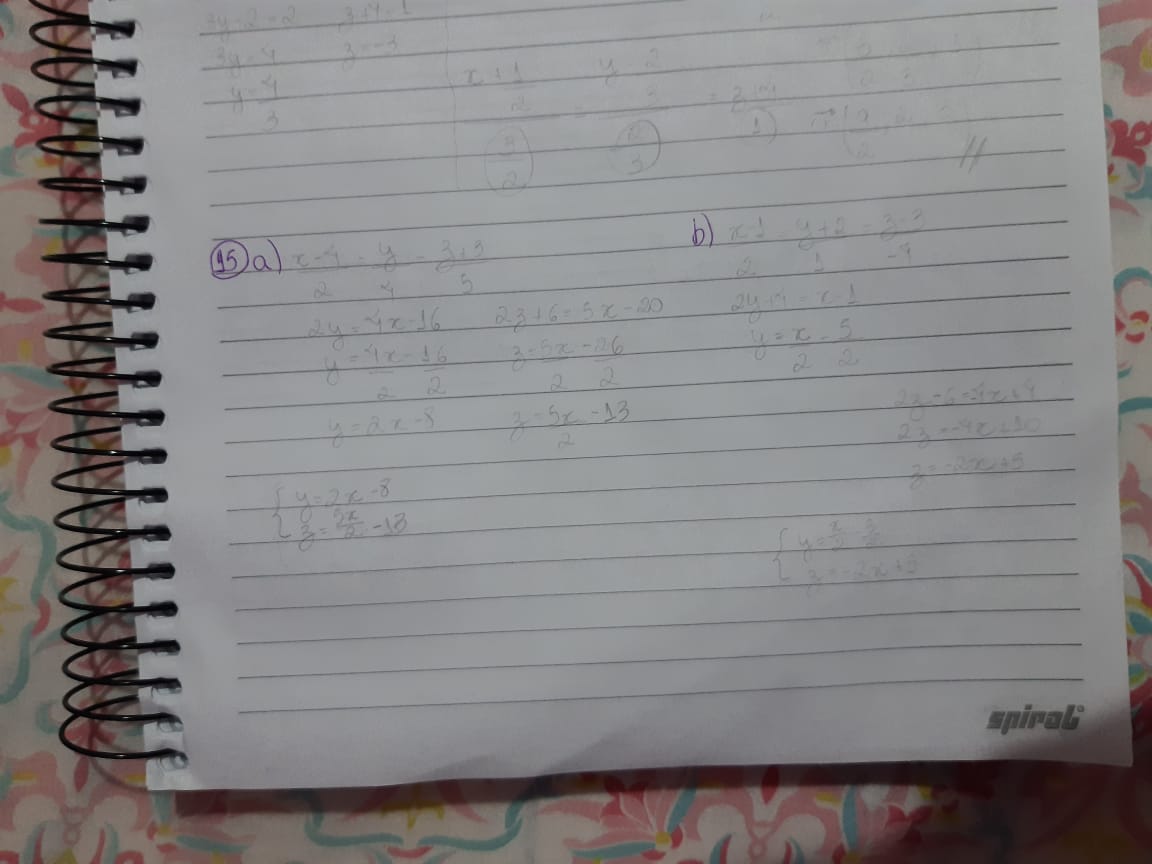 3y-2=2 3+4=1
3y=4 z=-3
y=4/3
x+1/2 / (3/2) = y-2/3 / (2/3) = z+4 / 1
15 a) (x-4)/2 = y/4 = (z+3)/5
2y=4x-16 2z+6=5x-20
y=4x/2-16/2 z=5x/2-26/2
y=2x-8 z=5x/2-13
{ y=2x-8
{ z=5x/2-13
b) (x-1)/2 = (y+2)/1 = (z-3)/-4
2y+4=x-1
y=x/2-5/2
2z-6=-4x+4
2z=-4x+10
z=-2x+5
{ y=x/2-5/2
{ z=-2x+5
spiral